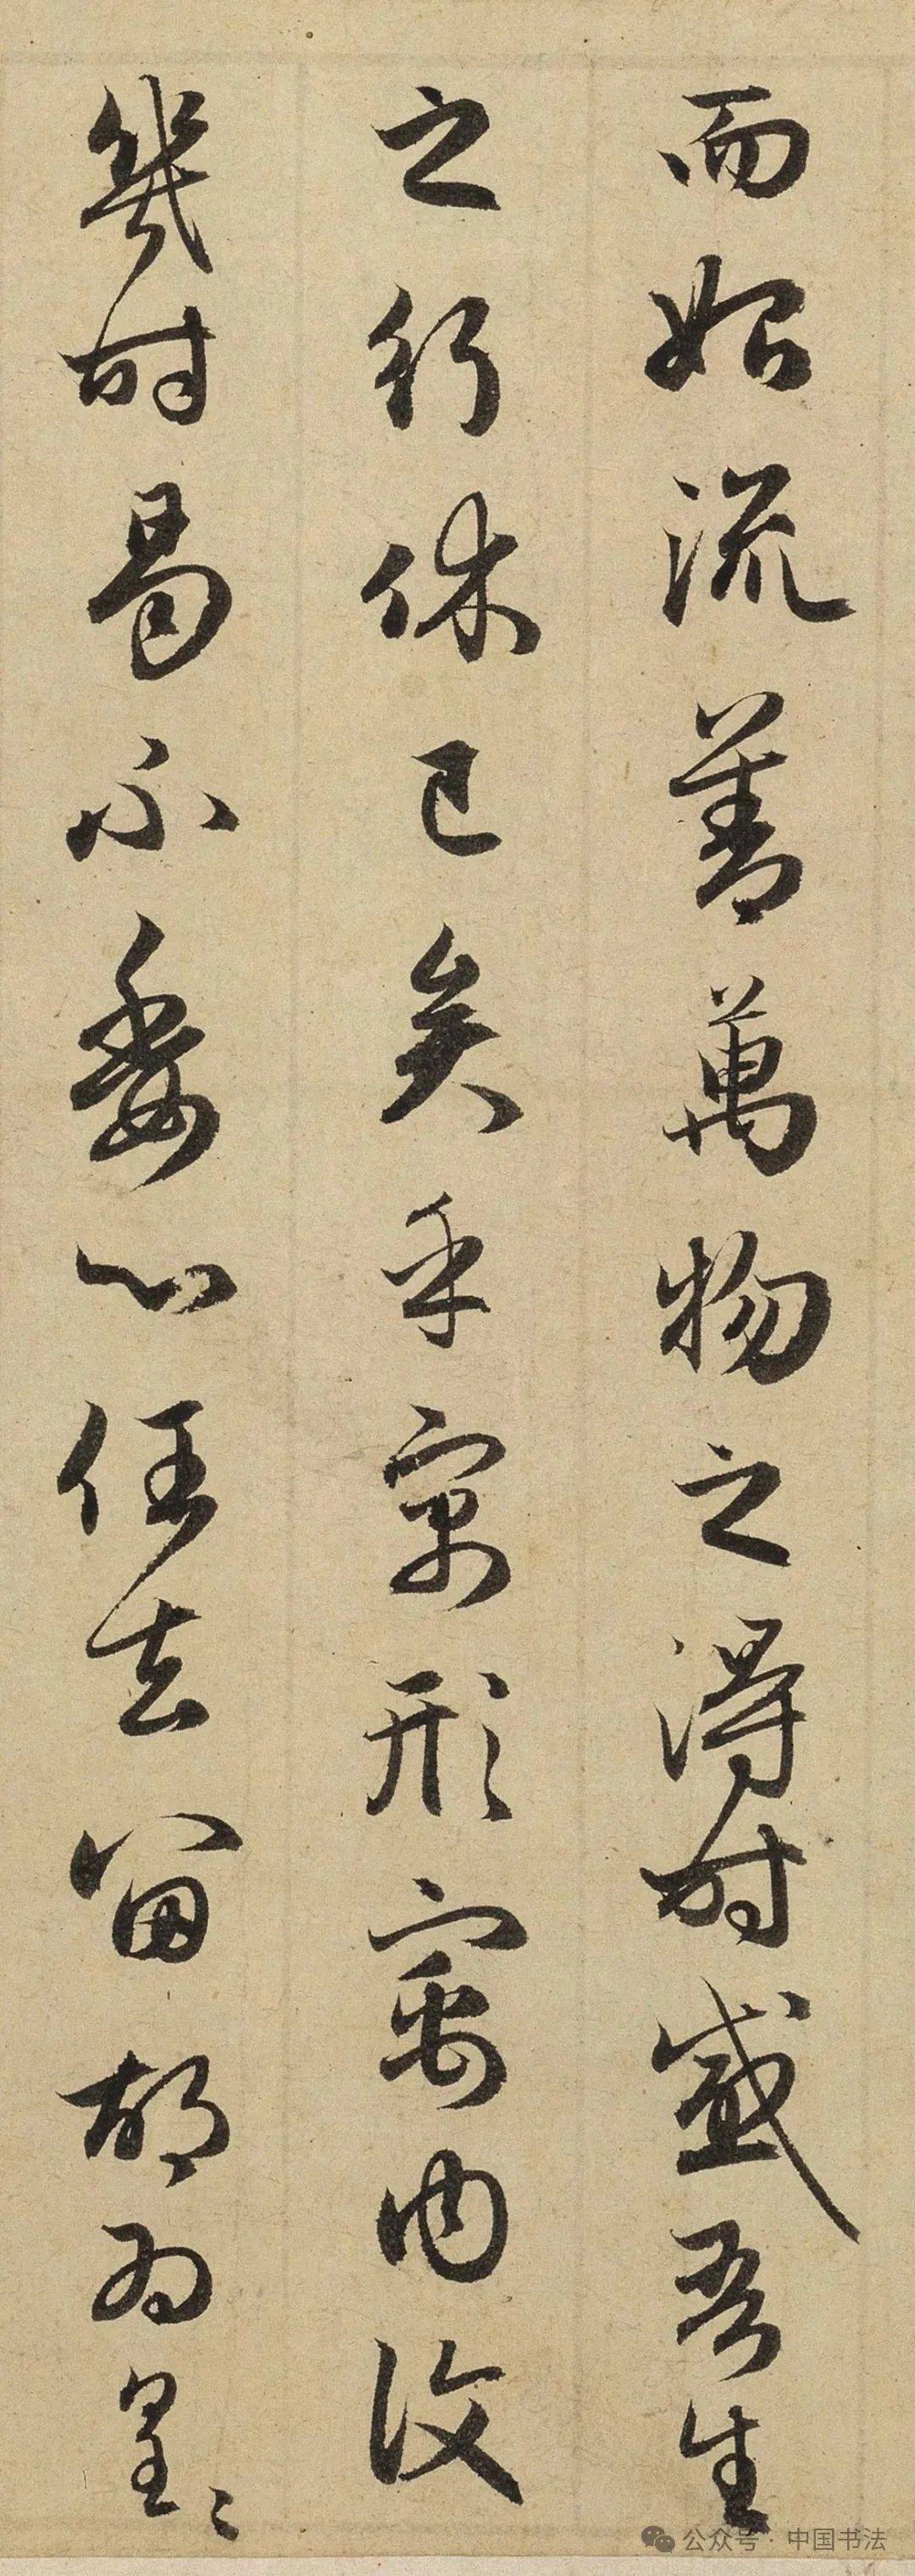 而始流善萬物之得時感吾生
之行休已矣乎寓形宇内復
幾時曷不委心任去留胡為皇々
公众号 · 中国书法